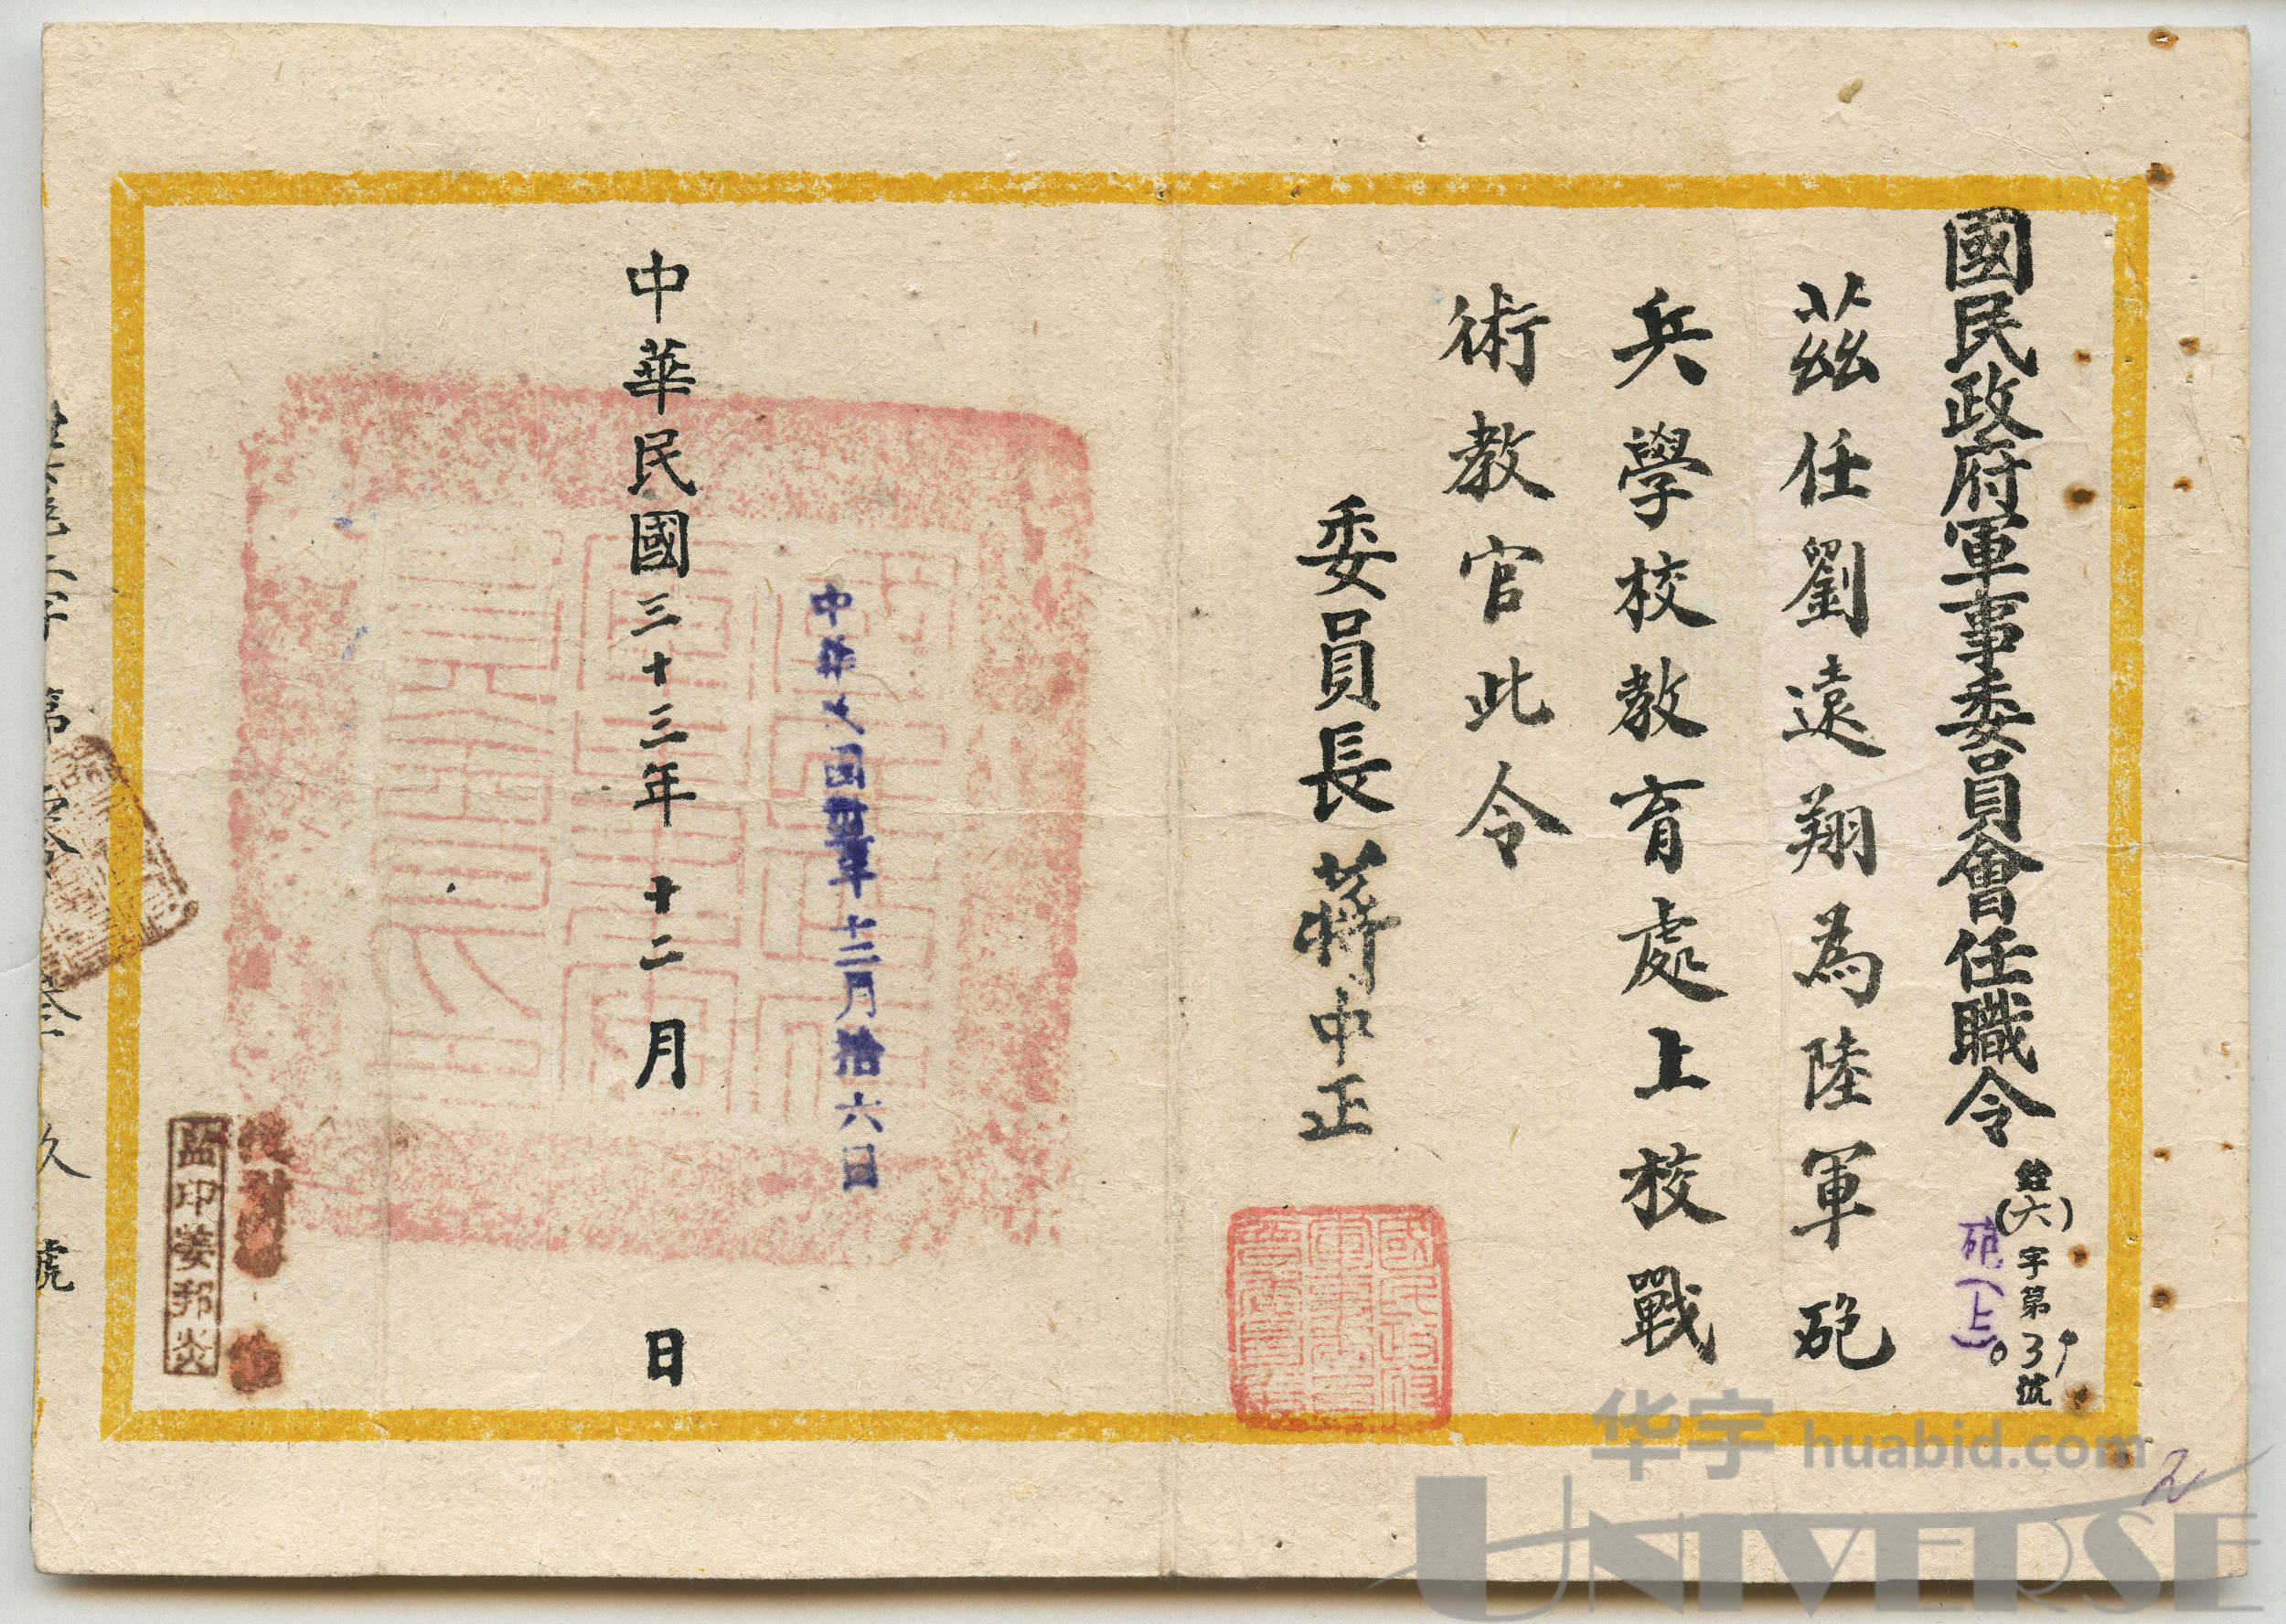 國民政府軍事委員會任職令
(六)字第
號
砲(上)
茲任劉遠翔為陸軍砲
兵學校教育處上校戰
術教官此令
委員長蔣中正
國民政府軍事委員會委員長
中華民國三十三年十二月 日
十二月拾六日
監印姜邦炎
第
玖號
2
华宇 huabid.com
UNIVERSE